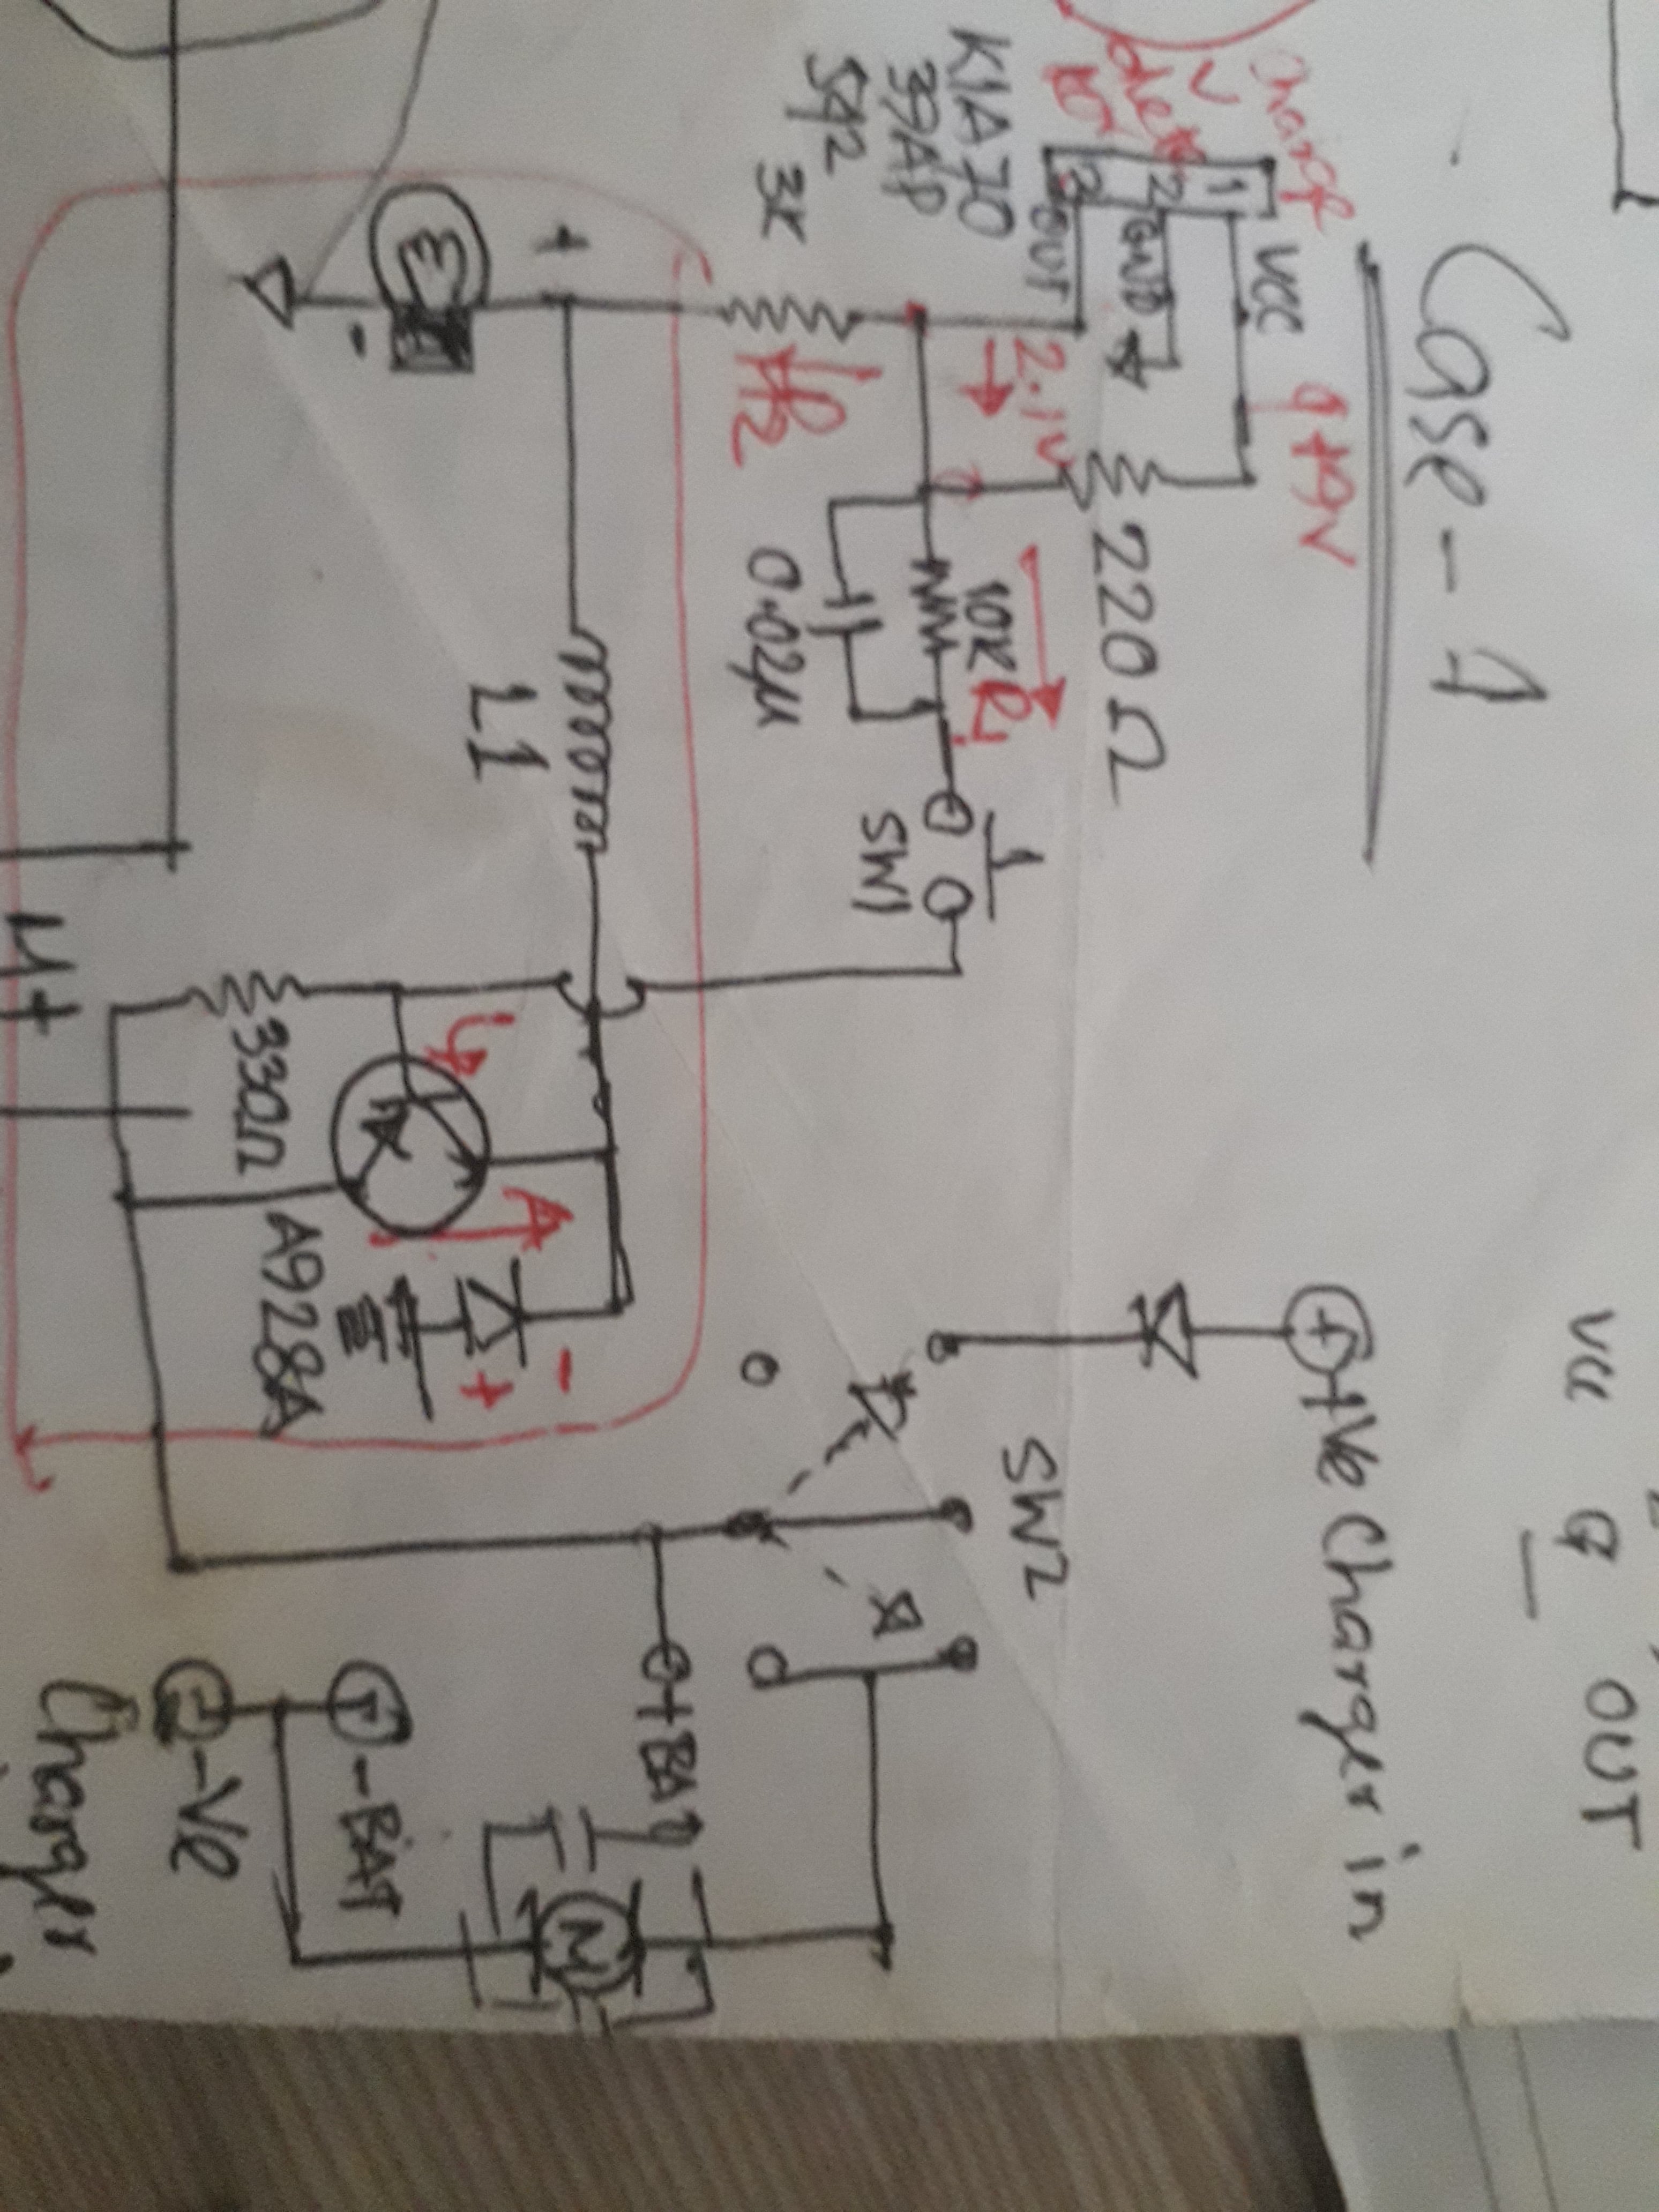 Case-1
Vcc G OUT
Charge
V
dete
1
2
3
VCC
GND
OUT
KIA 70
39AP
592
+9V
2.1V
220Ω
3K
10K
0.02µ
SW1
+
-
L1
330Ω
A928A
-
+
+Ve Charger in
SW2
+BAT
-BAT
-Ve
Charger
M